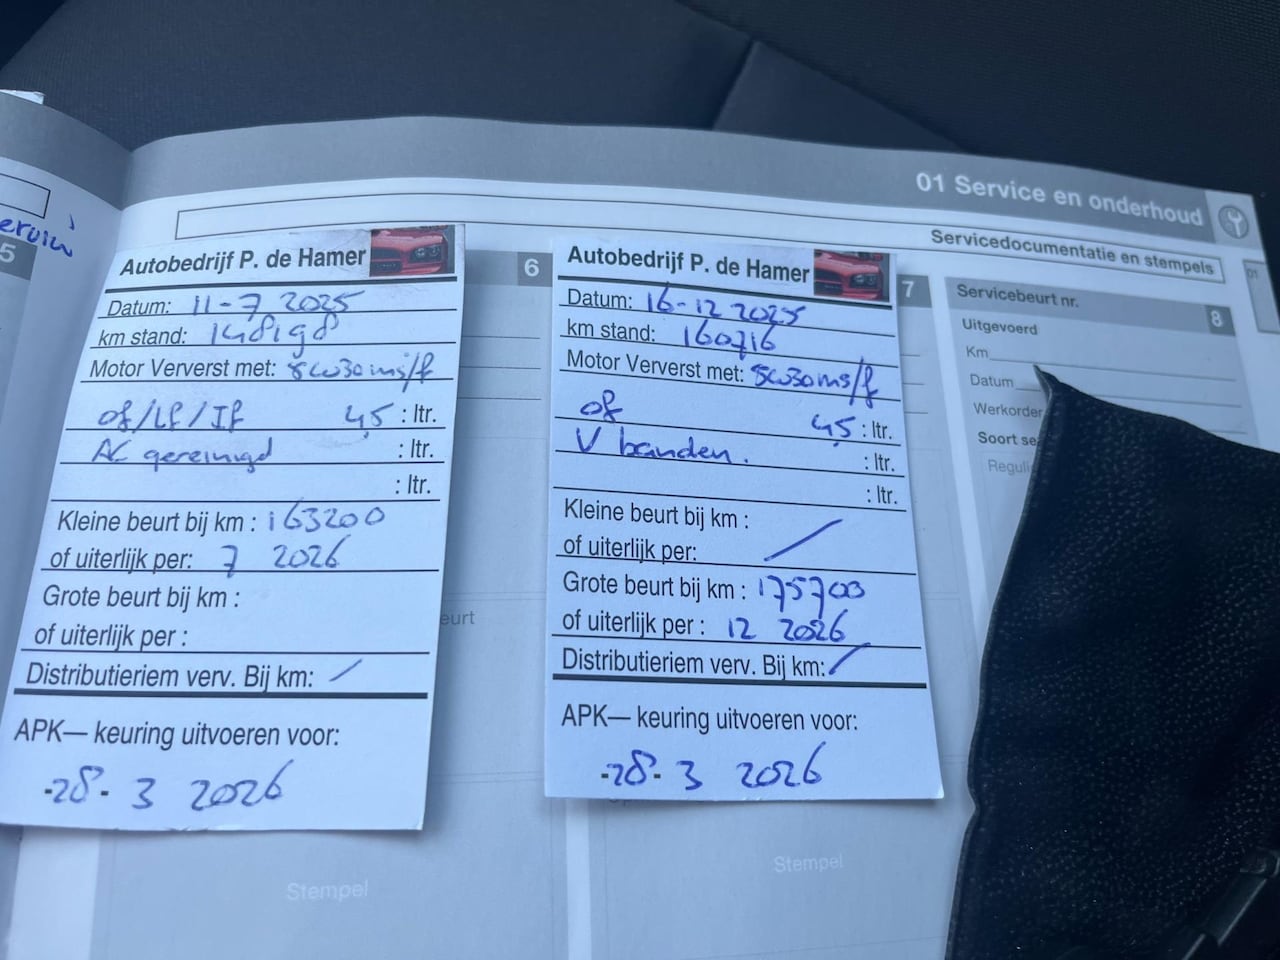 01 Service en onderhoud
Servicedocumentatie en stempels
01
5
6
Autobedrijf P. de Hamer
Datum: 11-7 2025
km stand: 148198
Motor Ververst met: 5w30 ms/f
of/Lf/If 4,5 : ltr.
AC gereinigd : ltr.
: ltr.
Kleine beurt bij km : 163200
of uiterlijk per: 7 2026
Grote beurt bij km :
of uiterlijk per :
Distributieriem verv. Bij km: /
APK— keuring uitvoeren voor:
-28- 3 2026
Stempel
7
Autobedrijf P. de Hamer
Datum: 16-12 2025
km stand: 160716
Motor Ververst met: 5w30 ms/f
of 4,5 : ltr.
V banden. : ltr.
: ltr.
Kleine beurt bij km : /
of uiterlijk per:
Grote beurt bij km : 175700
of uiterlijk per : 12 2026
Distributieriem verv. Bij km: /
APK— keuring uitvoeren voor:
-28- 3 2026
Stempel
Servicebeurt nr. 8
Uitgevoerd
Km
Datum
Werkorder
Soort se
Reguli
eurt